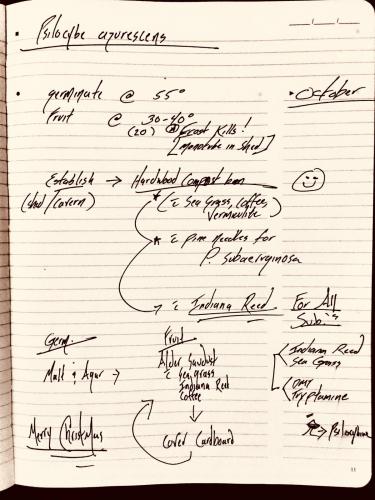 Psilocybe azurescens
germinate @ 55°
• October
Fruit @ 30-40°
(20) Frost Kills!
[monotube in shed]
Establish → Hardwood Compost
(shed/cavern)
* (c̄ Sea Grass, Coffee,
Vermiculite)
* c̄ Pine Needles for
P. subaeruginosa
→ c̄ Indiana Reed
For All
Sub:
Germ.
Fruit
Indiana Reed
Sea Grass
Malt & Agar →
Alder Sawdust
c̄ Sea grass
Indiana Reed
Coffee
DMT
Tryptamine
→ Psilocybin
Merry Christmas
Cover Cardboard